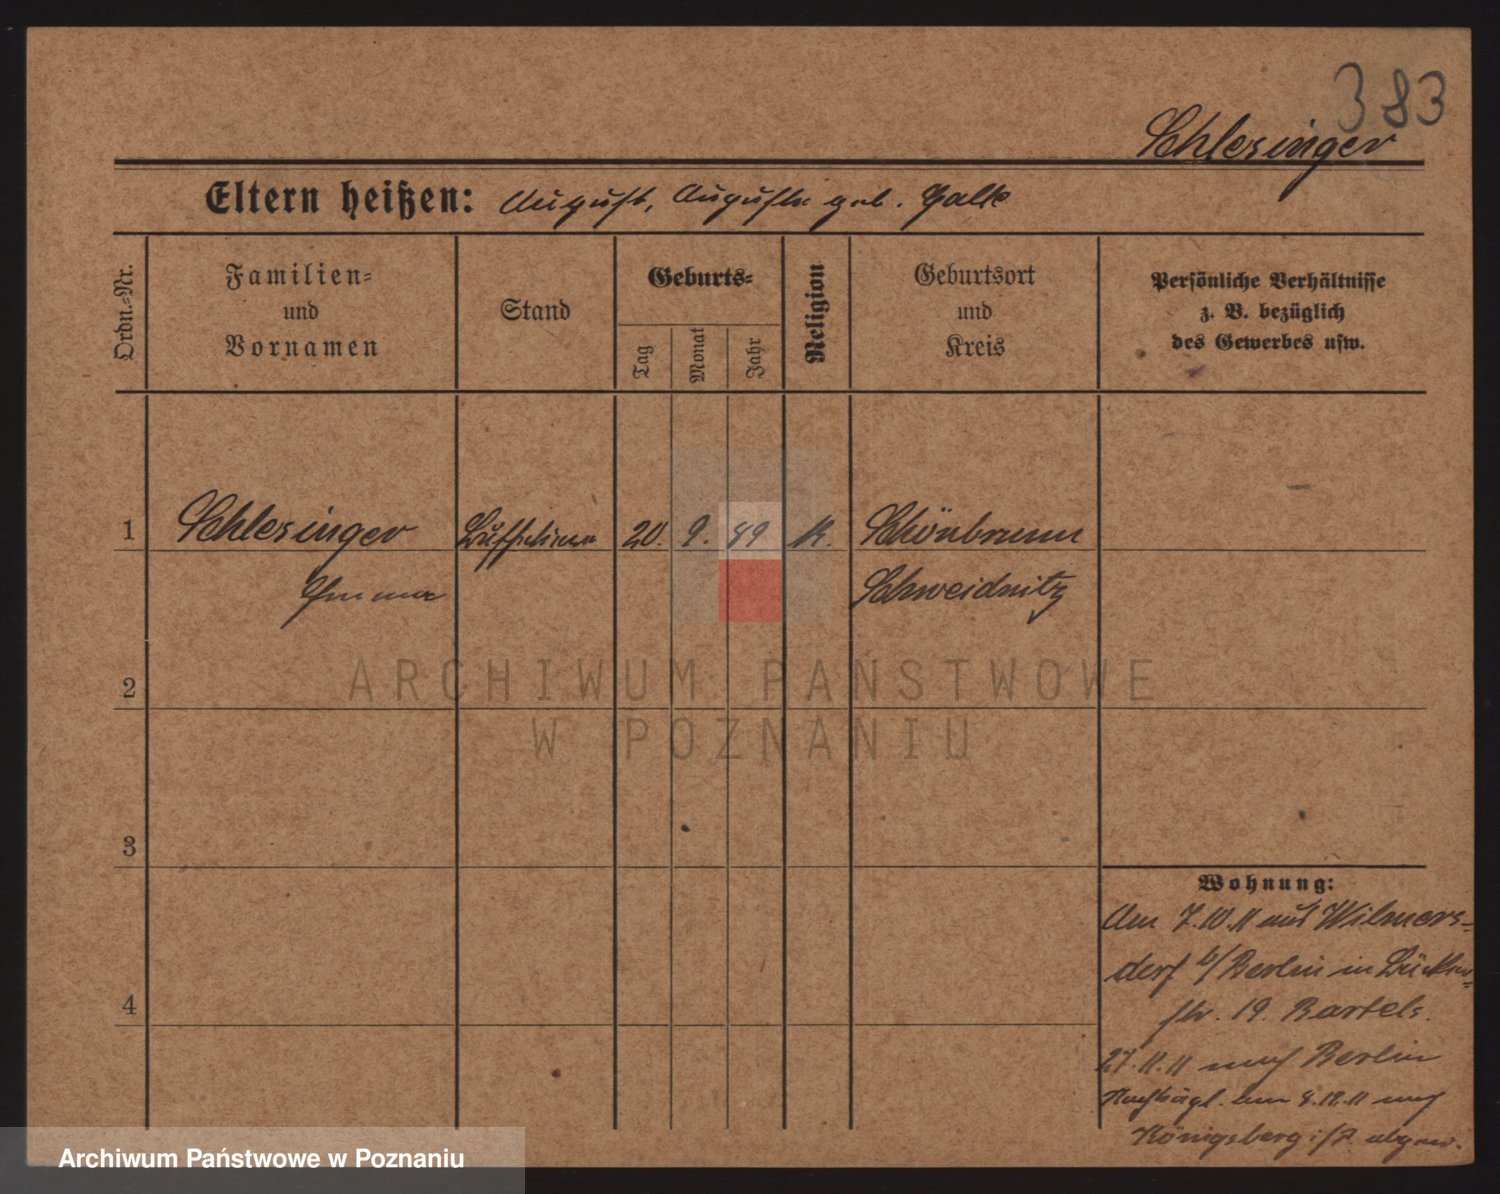 383
Schlesinger
Eltern heißen: August, Auguste geb. Galle
Ordn.-Nr.
Familien-
und
Vornamen
Stand
Geburts-
Tag
Monat
Jahr
Religion
Geburtsort
und
Kreis
Persönliche Verhältnisse
z. B. bezüglich
des Gewerbes usw.
1 Schlesinger 20. 9. 89 K. Schönbrunn
Emma Schweidnitz
2
ARCHIWUM PAŃSTWOWE
W POZNANIU
3
Wohnung:
Am 7.10.11 aus Wilmers-
dorf b/Berlin in
str. 19. Bartels.
4
27.11.11 nach Berlin
Nachträgl. am 8.12.11 nach
Königsberg i/P. abgem.
Archiwum Państwowe w Poznaniu